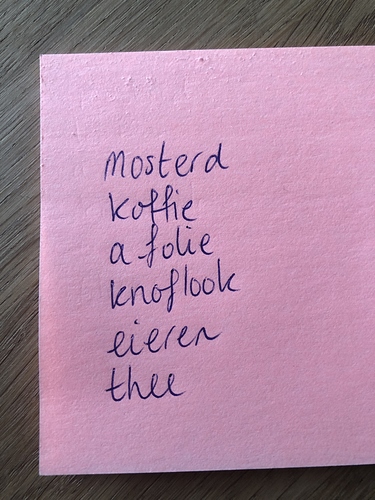 Mosterd
koffie
a folie
knoflook
eieren
thee